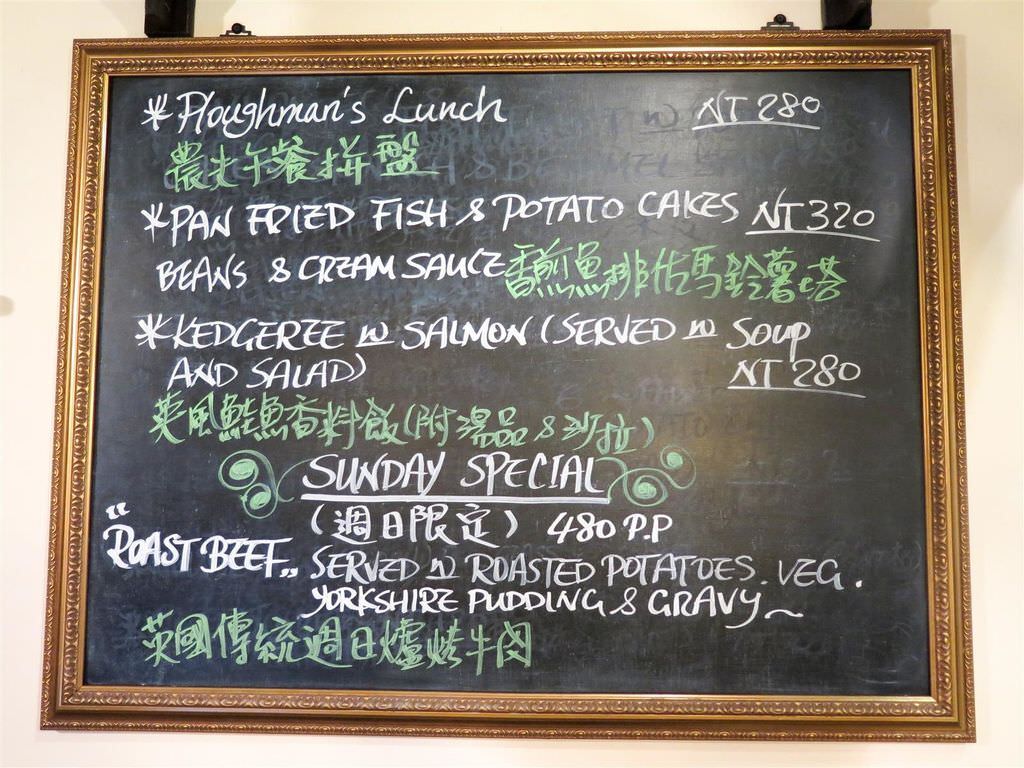 * Ploughman's Lunch NT 280
農夫午餐拼盤
* PAN FRIED FISH & POTATO CAKES NT 320
BEANS & CREAM SAUCE 香煎魚排佐馬鈴薯塔
* KEDGEREE w SALMON (SERVED w Soup
AND SALAD) NT 280
英風鮭魚香料飯(附湯品&沙拉)
SUNDAY SPECIAL
(週日限定) 480 P.P
"ROAST BEEF" SERVED w ROASTED POTATOES. VEG.
YORKSHIRE PUDDING & GRAVY~
英國傳統週日爐烤牛肉